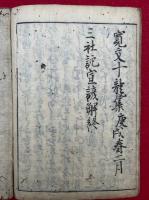 寛文十龍集庚戌春二月
三社託宣諺解終